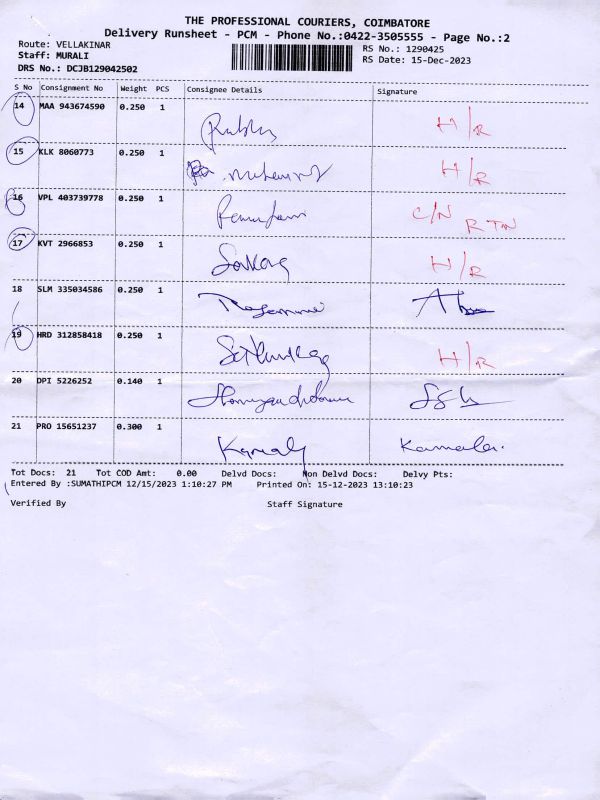 THE PROFESSIONAL COURIERS, COIMBATORE
Delivery Runsheet - PCM - Phone No.:0422-3505555 - Page No.:2
Route: VELLAKINAR
RS No.: 1290425
Staff: MURALI
RS Date: 15-Dec-2023
DRS No.: DCJB129042502
S No Consignment No Weight PCS Consignee Details Signature
14 MAA 943674590 0.250 1
H/R
15 KLK 8060773 0.250 1
H/R
16 VPL 403739778 0.250 1
C/N RTN
17 KVT 2966853 0.250 1
H/R
18 SLM 335034586 0.250 1
19 HRD 312858418 0.250 1
H/R
20 DPI 5226252 0.140 1
21 PRO 15651237 0.300 1
Kamala.
Tot Docs: 21 Tot COD Amt: 0.00 Delvd Docs: Non Delvd Docs: Delvy Pts:
Entered By :SUMATHIPCM 12/15/2023 1:10:27 PM Printed On: 15-12-2023 13:10:23
Verified By Staff Signature